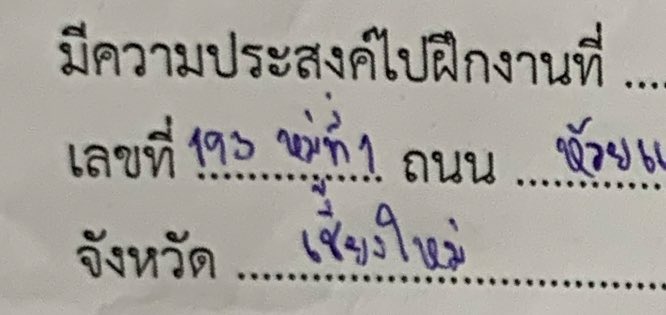 มีความประสงค์ไปฝึกงานที่ ....
เลขที่ 193 หมู่ที่ 1 ถนน ห้วยแ
จังหวัด เชียงใหม่